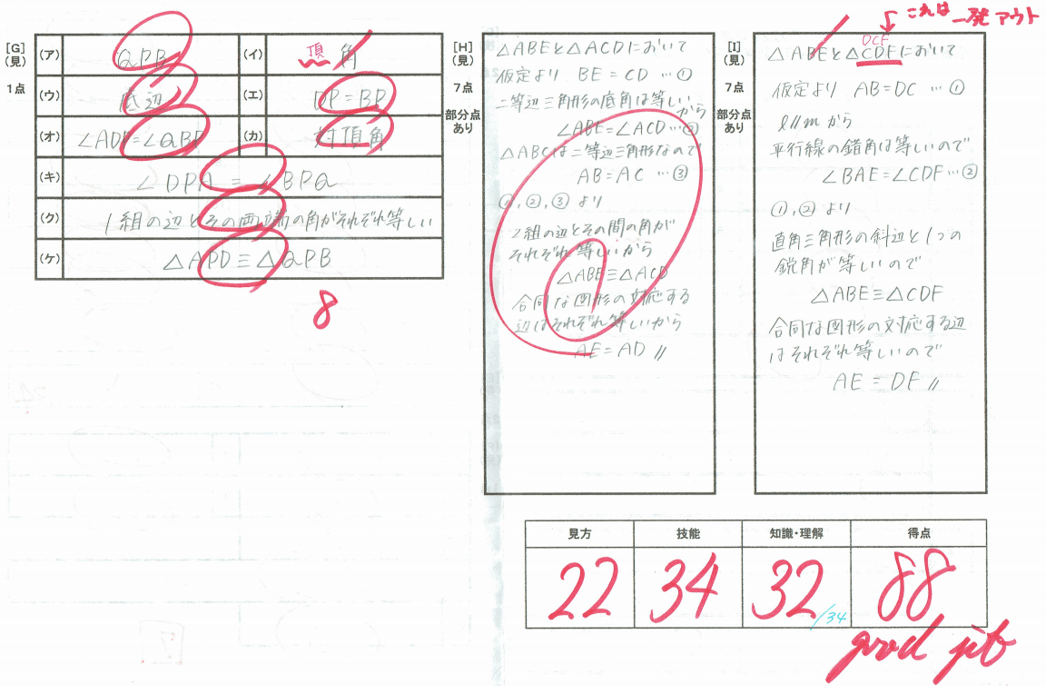 これは一発アウト
[G]
(見)
1点
(ア) QPB
(イ) 頂角
(ウ) 底辺
(エ) DP=BP
(オ) ∠ADP=∠QBP
(カ) 対頂角
(キ) ∠DPA = ∠BPQ
(ク) 1組の辺とその両端の角がそれぞれ等しい
(ケ) △APD≡△QPB
8
[H]
(見)
7点
部分点
あり
△ABEと△ACDにおいて
仮定より BE=CD …①
二等辺三角形の底角は等しいから
∠ABE=∠ACD…②
△ABCは二等辺三角形なので
AB=AC …③
①,②,③より
2組の辺とその間の角が
それぞれ等しいから
△ABE≡△ACD
合同な図形の対応する
辺はそれぞれ等しいから
AE=AD
7
[I]
(見)
7点
部分点
あり
DCF
△ABEと△CDFにおいて
仮定より AB=DC …①
ℓ//mから
平行線の錯角は等しいので
∠BAE=∠CDF…②
①,②より
直角三角形の斜辺と1つの
鋭角が等しいので
△ABE≡△CDF
合同な図形の対応する辺
はそれぞれ等しいので
AE=DF
見方 技能 知識・理解 得点
22 34 32 /34 88
good job